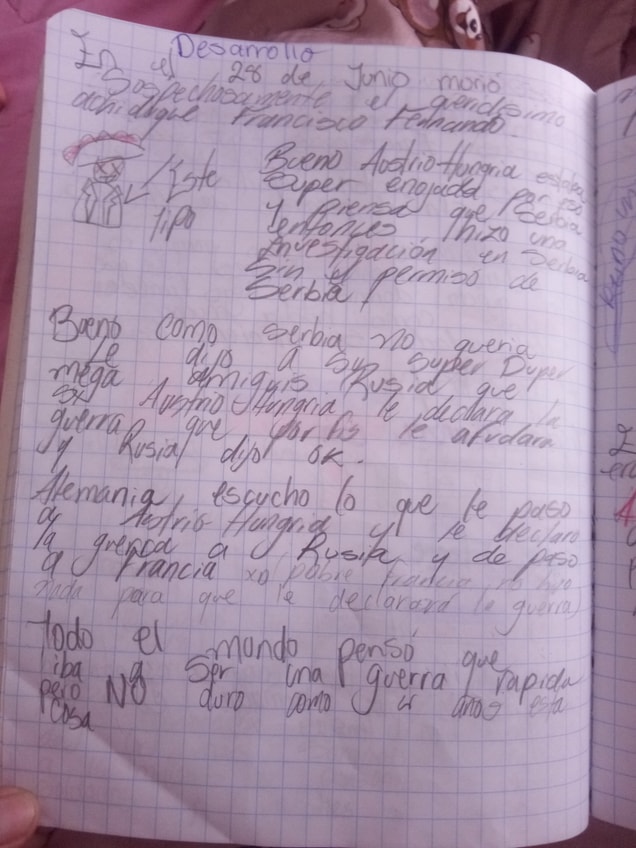 Desarrollo
En el 28 de Junio murió
Sospechosamente el queridisimo
achiduque Francisco Fernando.
Este
tipo
Bueno Austrio-Hungria estaba
super enojada por eso
y piensa que Serbia
entonces hizo una
investigación en Serbia
Sin el permiso de
Serbia
Bueno como serbia no queria
le dijo a su super Duper
mega amiguis Rusia que
si Austrio Hungria le declara la
guerra que porfis le ayudara
y Rusia dijo ok.
Alemania escucho lo que le paso
a Austrio Hungria y le declaro
la guerra a Rusia y de paso
a Francia xd pobre francia no hizo
nada para que le declarará la guerra)
Todo el mundo pensó que
iba a ser una guerra rapida
pero NO duro como 4 años esta
cosa